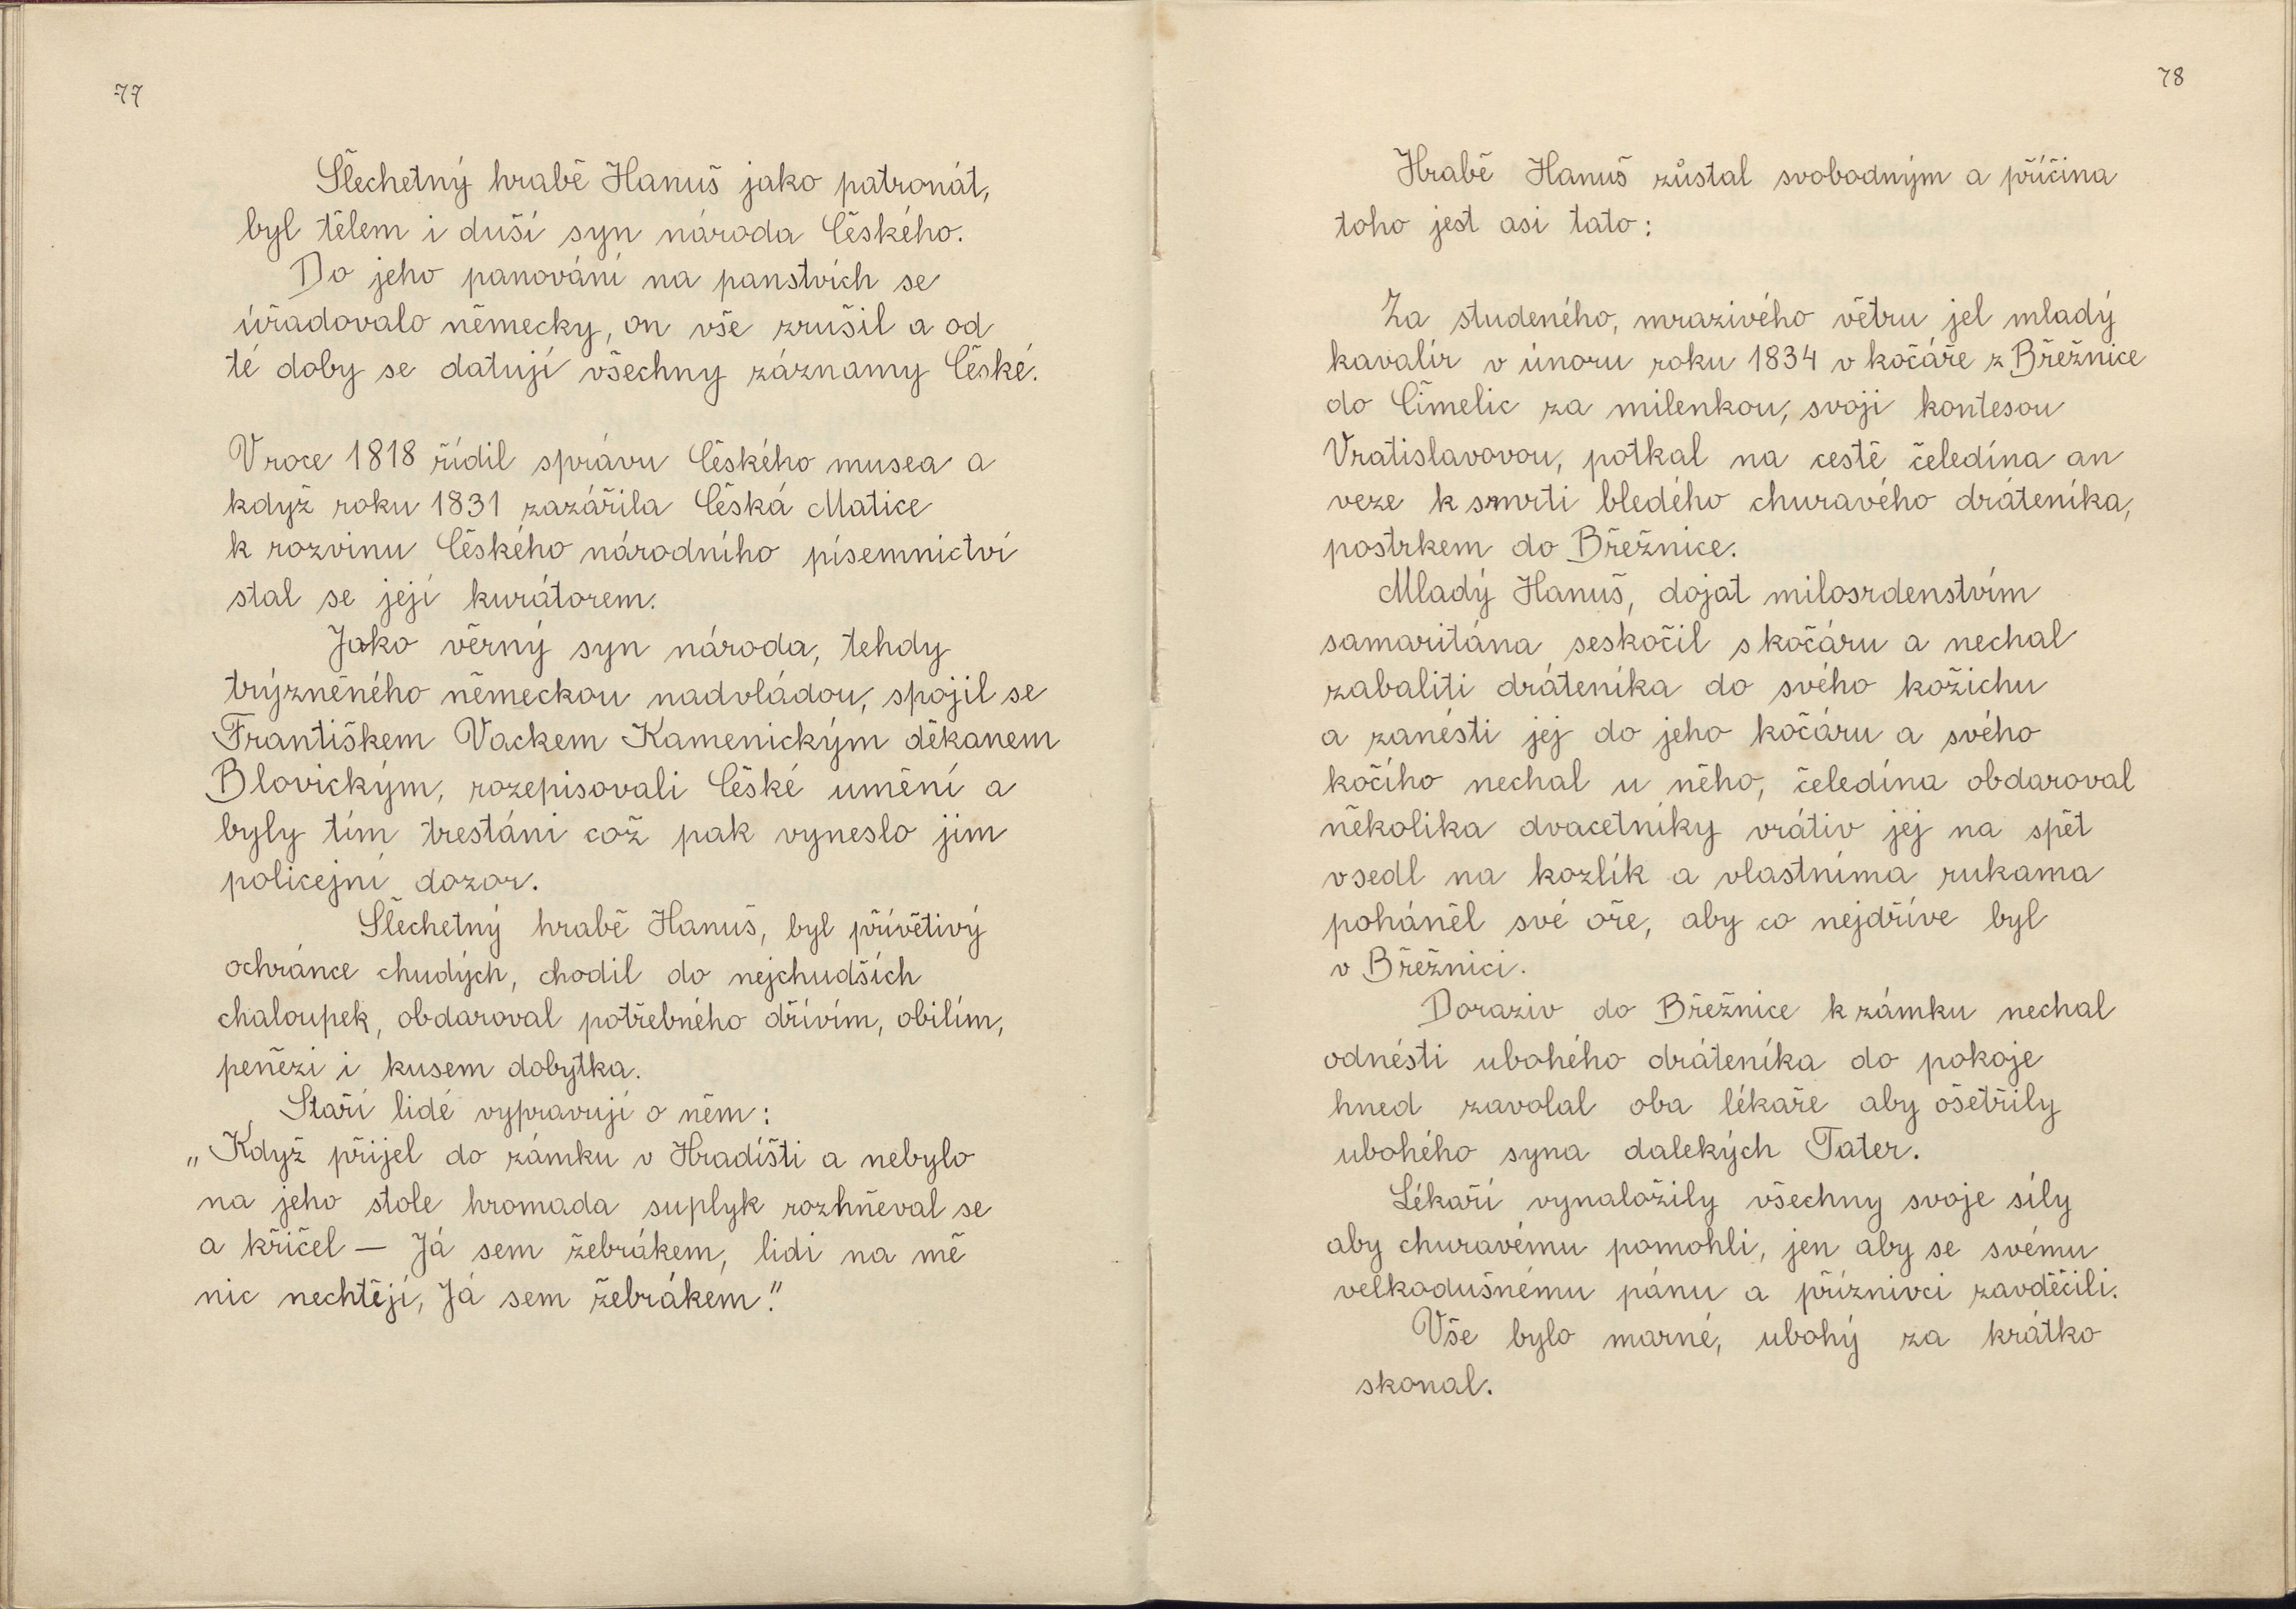 77
Šlechetný hrabě Hanuš jako patronát,
byl tělem i duší syn národa Českého.
Do jeho panování na panstvích se
úřadovalo německy, on vše zrušil a od
té doby se datují všechny záznamy České.
V roce 1818 řídil správu Českého musea a
když roku 1831 zazářila Česká Matice
k rozvinu Českého národního písemnictví
stal se její kurátorem.
Jako věrný syn národa, tehdy
trýzněného německou nadvládou, spojil se
Františkem Vackem Kamenickým děkanem
Blovickým, rozepisovali České umění a
byly tím trestáni což pak vyneslo jim
policejní dozor.
Šlechetný hrabě Hanuš, byl přívětivý
ochránce chudých, chodil do nejchudších
chaloupek, obdaroval potřebného dřívím, obilím,
penězi i kusem dobytka.
Staří lidé vypravují o něm:
„Když přijel do zámku v Hradišti a nebylo
na jeho stole hromada suplyk rozhněval se
a křičel — Já sem žebrákem, lidi na mě
nic nechtějí, Já sem žebrákem."
78
Hrabě Hanuš zůstal svobodným a příčina
toho jest asi tato:
Za studeného, mrazivého větru jel mladý
kavalír v únoru roku 1834 v kočáře z Břežnice
do Čimelic za milenkou, svoji kontesou
Vratislavovou, potkal na cestě čeledína an
veze k smrti bledého churavého dráteníka,
postrkem do Břežnice.
Mladý Hanuš, dojat milosrdenstvím
samaritána seskočil s kočáru a nechal
zabaliti dráteníka do svého kožichu
a zanésti jej do jeho kočáru a svého
kočího nechal u něho, čeledína obdaroval
několika dvacetníky vrátiv jej na spět
vsedl na kozlík a vlastníma rukama
poháněl své oře, aby co nejdříve byl
v Břežnici.
Doraziv do Břežnice k zámku nechal
odnésti ubohého dráteníka do pokoje
hned zavolal oba lékaře aby ošetřily
ubohého syna dalekých Tater.
Lékaři vynaložily všechny svoje síly
aby churavému pomohli, jen aby se svému
velkodušnému pánu a příznivci zavděčili.
Vše bylo marné, ubohý za krátko
skonal.